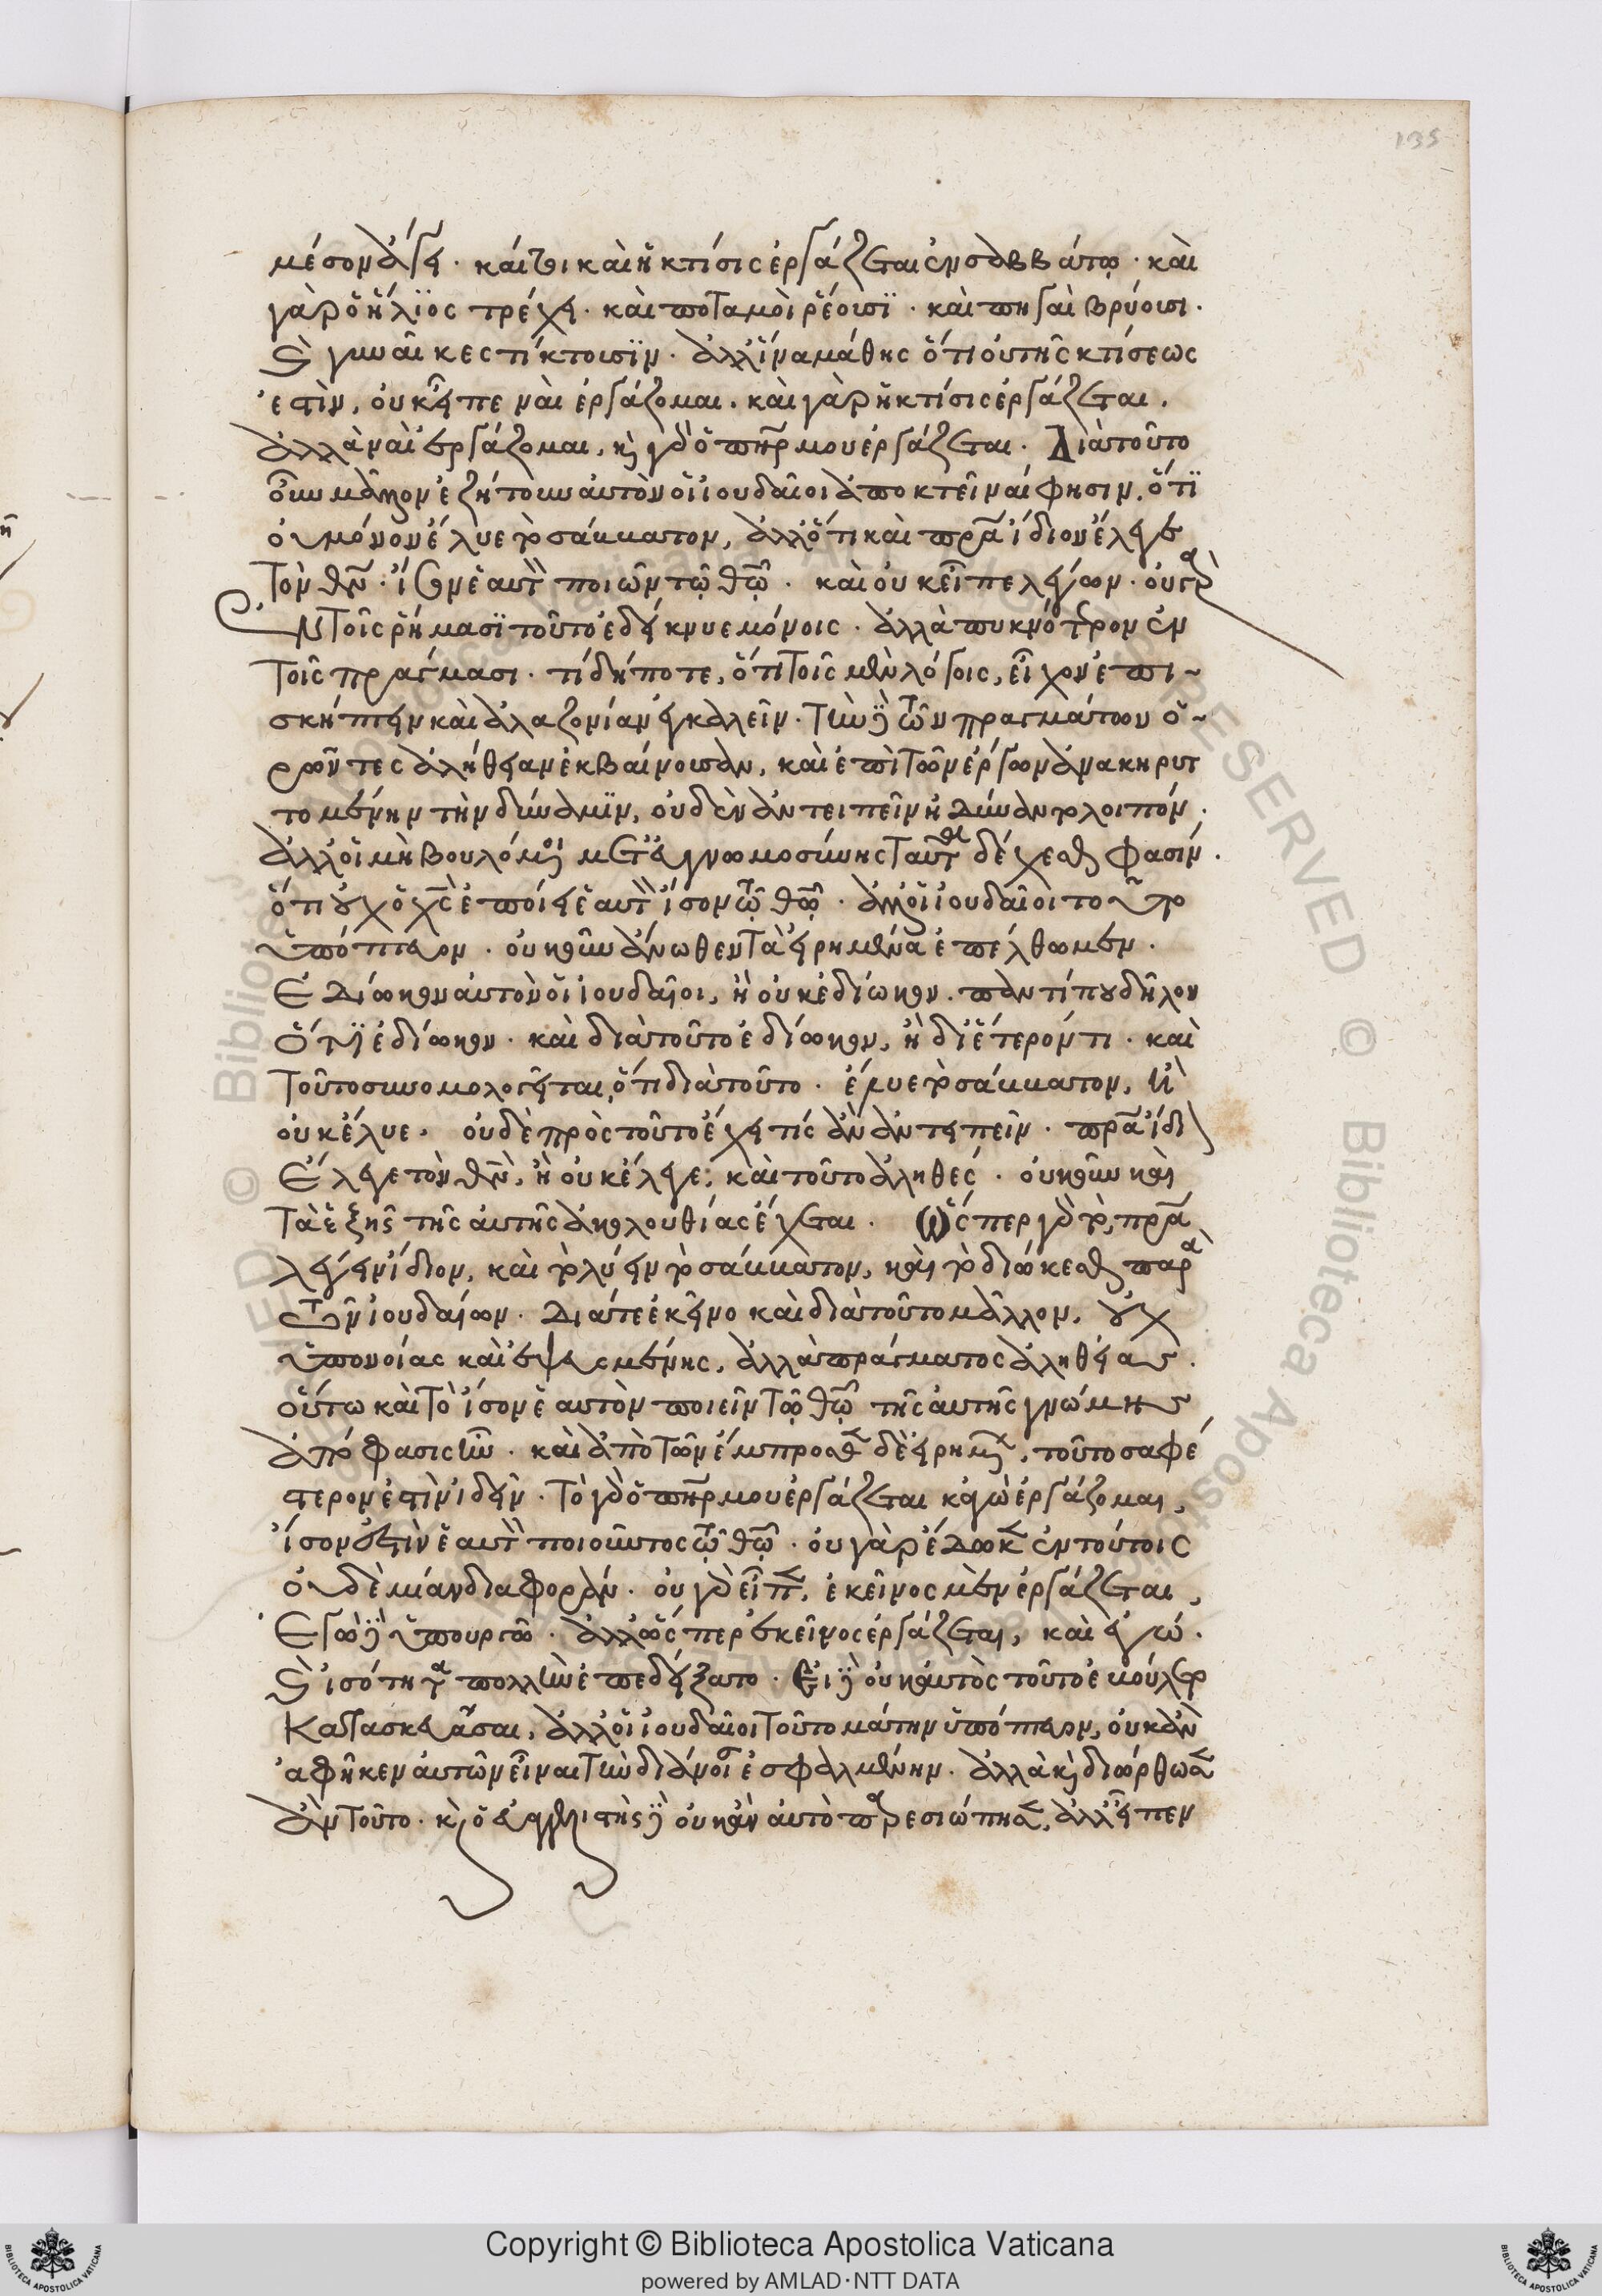 135
μέσον ἄγει. καίτοι καὶ ἡ κτίσις ἐργάζεται ἐν σαββάτῳ. καὶ
γὰρ ὁ ἥλϊος τρέχει. καὶ ποταμοὶ ῥέουσϊ. καὶ πηγαὶ βρύουσι.
καὶ γυναῖκες τίκτουσϊν. ἀλλ' ἵνα μάθης ὅτι οὐ τῆς κτίσεως
ἐστὶν, οὐκ εἶπε ναὶ ἐργάζομαι. καὶ γὰρ ἡ κτίσις ἐργάζεται.
ἀλλὰ ναὶ ἐργάζομαι, καὶ γὰρ ὁ πηρ μου ἐργάζεται. Διὰ τοῦτο
οὖν μᾶλλον ἐζήτουν αὐτὸν οἱ ἰουδαῖοι ἀποκτεῖναί φησιν. ὅτϊ
οὐ μόνον ἔλυε τὸ σάββατον, ἀλλ' ὅτι καὶ πρα ἴδιον ἔλεγε
τὸν θν. ἴσον ἑαυτὸν ποιῶν τῷ θῶ. καὶ οὐκ εἶπε λέγων. οὐ γὰρ
ἐν τοῖς ῥήμασϊ τοῦτο ἐδείκνυε μόνοις. ἀλλὰ πυκνότερον ἐν
τοῖς πράγμασι. τί δήποτε, ὅτι τοῖς μὲν λόγοις, εἶχον ἐπι-
σκήπτειν καὶ ἀλαζονίαν ἐγκαλεῖν. τὴν δὲ τῶν πραγμάτων ὁ-
ρῶντες ἀλήθειαν ἐκβαίνουσαν, καὶ ἐπὶ τῶν ἔργων ἀνακηρυτ
τομένην τὴν δύναμϊν, οὐδὲν ἀντειπεῖν ἠδύναντο λοιπόν.
ἀλλ' οἱ μὴ βουλόμενοι μετ' εὐγνωμοσύνης ταῦτα δέχεσθαι φασίν.
ὅτι οὐχ ὁ χς ἐποίει ἑαυτὸν ἴσον τῶ θῶ. ἀλλ' οἱ ἰουδαῖοι τοῦτο
ὑπόπτευον. οὐκοῦν ἄνωθεν τὰ εἰρημένα ἐπέλθωμεν.
Ἐδίωκον αὐτὸν οἱ ἰουδαῖοι, ἢ οὐκ ἐδίωκον. παντί που δῆλον
ὅτϊ ἐδίωκον. καὶ διὰ τοῦτο ἐδίωκον, ἢ δι' ἕτερόν τι. καὶ
τοῦτο συνομολογεῖται, ὅτι διὰ τοῦτο. ἔλυε τὸ σάββατον, ἢ
οὐκ ἔλυε. οὐδὲ πρὸς τοῦτο ἔχει τίς ἂν ἀντειπεῖν. πρα ἴδιον
Ἔλεγε τὸν θν, ἢ οὐκ ἔλεγε; καὶ τοῦτο ἀληθές. οὐκοῦν καὶ
τὰ ἑξῆς τῆς αὐτῆς ἀκολουθίας ἔχεται. Ὥσπερ γὰρ τὸ, πρα
λέγειν ἴδιον, καὶ τὸ λύειν τὸ σάββατον, καὶ τὸ διώκεσθαι παρὰ
τῶν ἰουδαίων. διά τε ἐκεῖνο καὶ διὰ τοῦτο μᾶλλον, οὐχ
ὑπονοίας καὶ ἐψευσμένης, ἀλλὰ πράγματος ἀληθείας.
οὕτω καὶ τὸ ἴσον ἑαυτὸν ποιεῖν τῷ θῶ τῆς αὐτῆς γνώμης
ἀπόφασις ἦν. καὶ ἀπὸ τῶν ἔμπροσθεν δὲ εἰρημένων, τοῦτο σαφέ
στερον ἐστὶν ἰδεῖν. τὸ γὰρ ὁ πηρ μου ἐργάζεται κἀγὼ ἐργάζομαι,
ἴσον ἐστὶν ἑαυτὸν ποιοῦντος τῶ θῶ. οὐ γὰρ ἔδωκεν ἐν τούτοις
οὐδὲ μίαν διαφοράν. οὐ γὰρ εἶπεν, ἐκεῖνος μὲν ἐργάζεται,
Ἐγὼ δὲ ὑπουργῶ. ἀλλ' ὥσπερ ἐκεῖνος ἐργάζεται, καὶ ἐγώ.
καὶ ἰσότητα πολλὴν ἐπεδείξατο. Εἰ δὲ οὐκ αὐτὸς τοῦτο ἐβούλετο
Κατασκευᾶσαι, ἀλλ' οἱ ἰουδαῖοι τοῦτο μάτην ὑπόπτευον, οὐκ ἂν
ἀφῆκεν αὐτῶν εἶναι τὴν διάνοιαν ἐσφαλμένην. ἀλλὰ καὶ διώρθωσεν
ἂν τοῦτο. καὶ ὁ εὐαγγελιστὴς δὲ οὐκ ἂν αὐτὸ παρεσιώπησεν, ἀλλ' εἶπεν
© Biblioteca Apostolica Vaticana
Copyright © Biblioteca Apostolica Vaticana
powered by AMLAD·NTT DATA
BIBLIOTECA APOSTOLICA VATICANA
BIBLIOTECA APOSTOLICA VATICANA